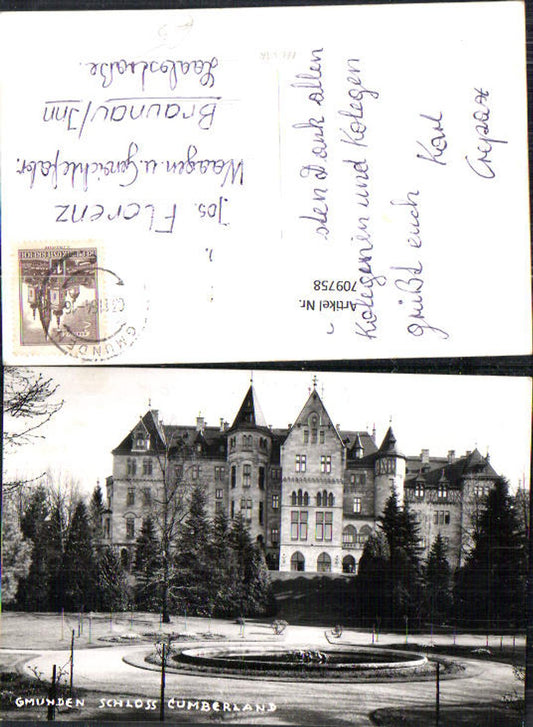 Jos. Florenz
Waagen u. Gewichtefabr.
Braunau/Inn
Laabstraße.
Artikel Nr.
709758
sten Dank allen
Kolegenien und Kolegen
grüßt euch Karl
REPUBLIK ÖSTERREICH
GMUNDEN
GMUNDEN SCHLOSS CUMBERLAND